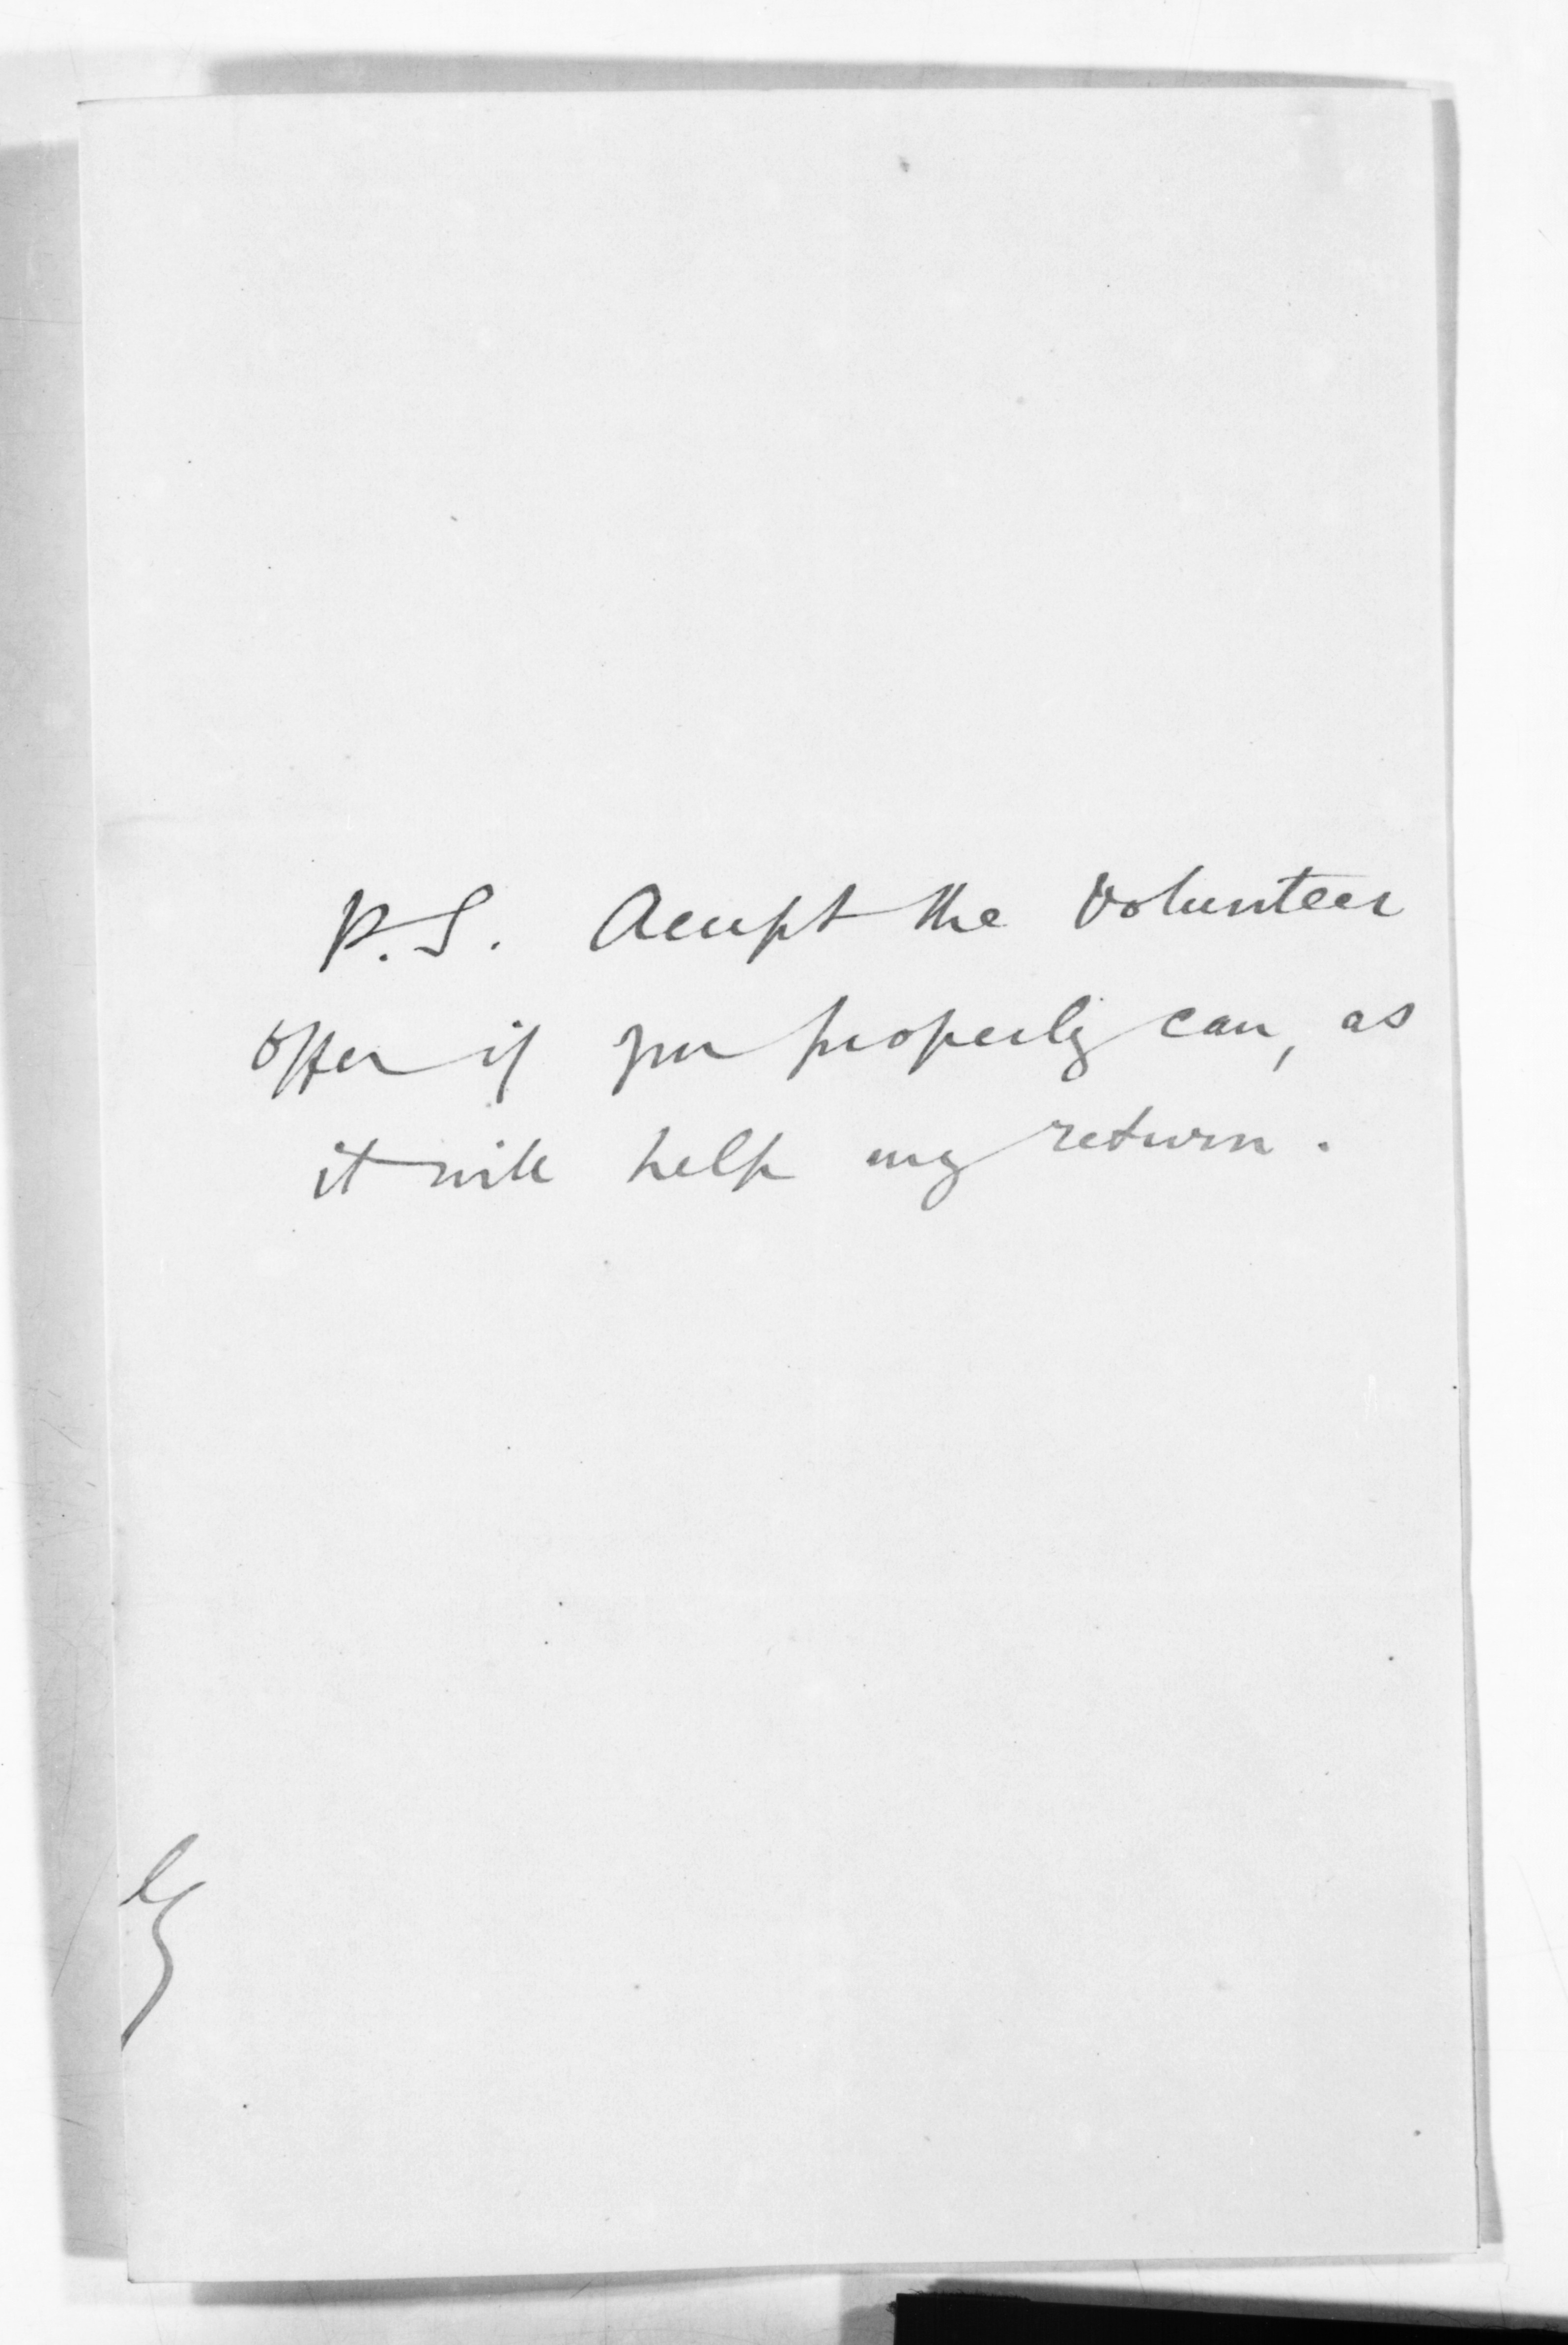 P.S. Accept the Volunteer
offer if you properly can, as
it will help my return.